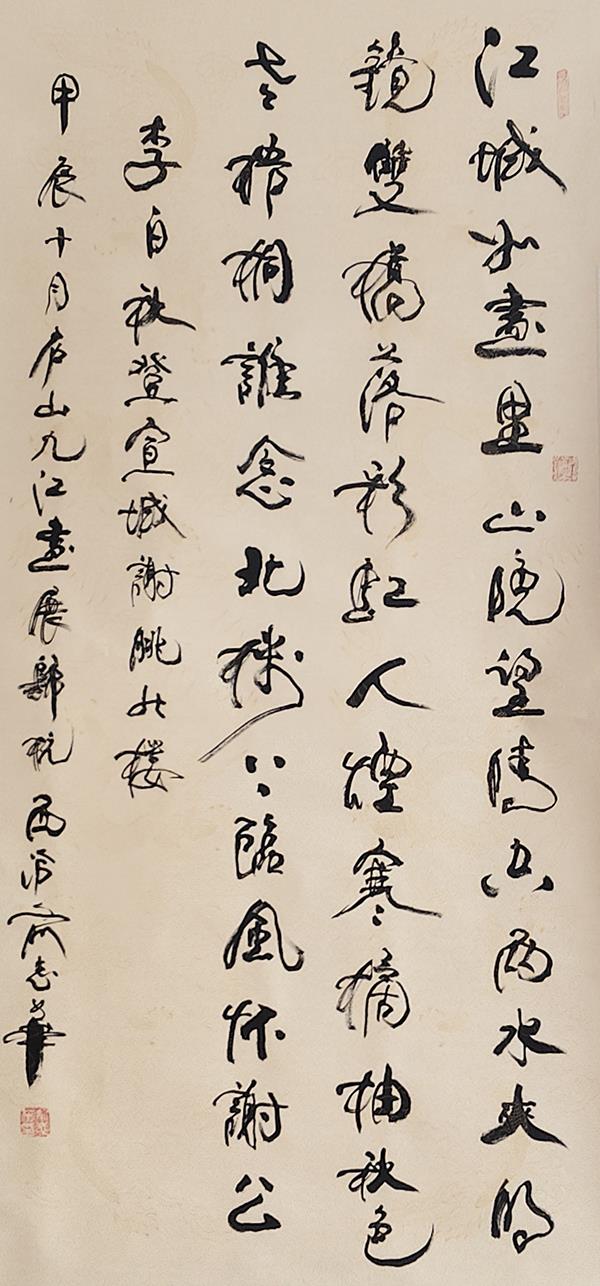 江城如畫里山晚望晴空兩水夾明
鏡雙橋落彩虹人煙寒橘柚秋色
老梧桐誰念北樓上臨風怀謝公
李白秋登宣城謝朓北樓
甲辰十月庐山九江畫展歸杭西泠俞志華